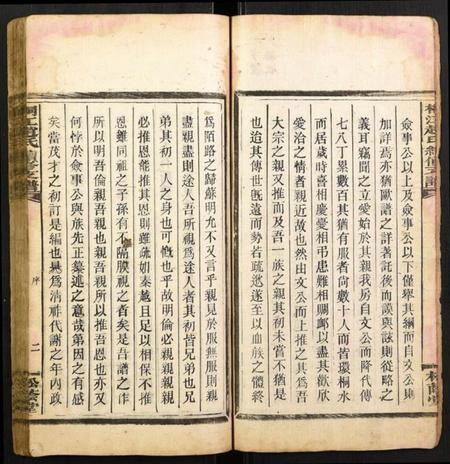 僉事公以上及僉事公以下僅舉其綱而自文公則
加詳焉亦猶歐譜之詳著託後而誤與諫則從略之
義耳竊聞之立愛始於其親我房自文公而降代傳
七八丁累數百其猶有服者尚數十人而皆環桐水
而居歲時喜相慶憂相弔患難相賙卹以盡其歡欣
愛洽之情者親近故也然由文公而上推之其爲吾
大宗之親又推而及吾一族之親其初未嘗不猶是
也迨其傳世旣遠而勢若疏逖遂至以血族之體終
爲陌路之歸蘇明允不又言乎親見於服無服則親
盡親盡則途人吾所視爲途人者其初皆兄弟也兄
弟其初一人之身也可慨也乎故明倫必親親親親
必推恩能推其恩則雖疏如秦越且足以相保不推
恩雖同祖之子孫有不隔膜視之者矣是吾譜之作
所以明吾倫吾親也親吾親所以推吾恩也亦又
何悖於僉事公與族先正纂述之意哉弟因之有感
矣當茂才之初訂是編也爲淸祚代謝之年內政
序
二
桐江趙氏